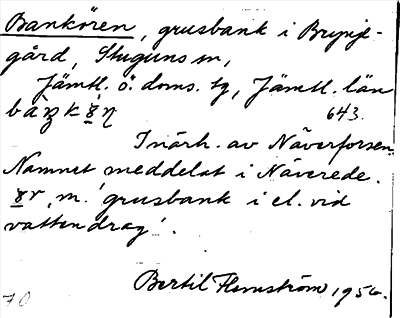 Bankören, grusbank i Brynje-
gård, Stuguns sn,
Jämtl. ö. doms. tg, Jämtl. län
643.
I närh. av Näverforsen.
Namnet meddelat i Näverede.
m. 'grusbank i el. vid
vattendrag'.
Bertil Flemström 1956.
70